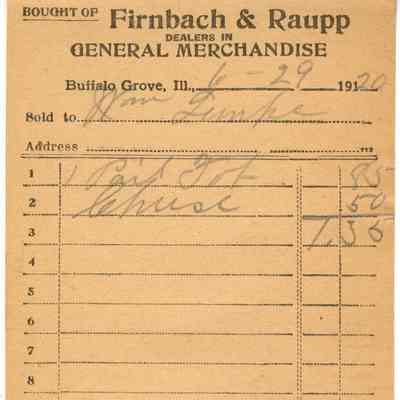 BOUGHT OF Firnbach & Raupp
DEALERS IN
GENERAL MERCHANDISE
Buffalo Grove, Ill., 6-29 1920
Sold to Wm
Address
1 1 Pail 85
2 Chuse 50
3 1.35
4
5
6
7
8